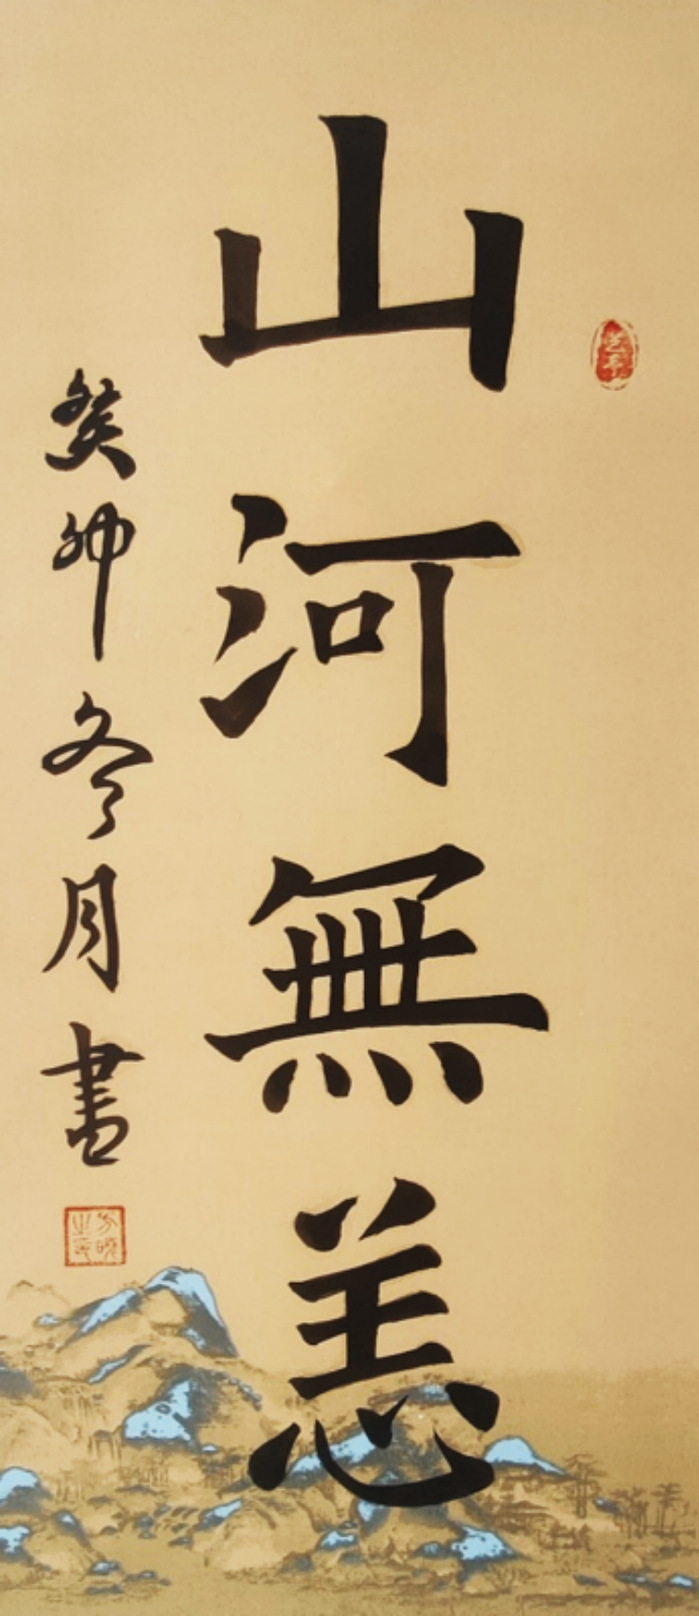 山河無恙
癸卯冬月書